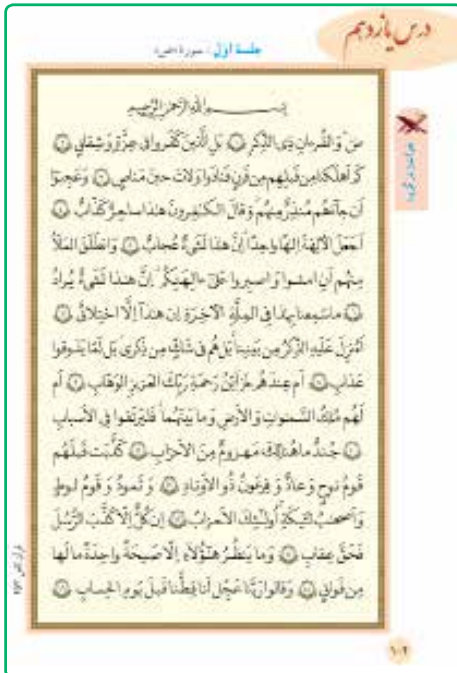 درس یازدهم
جلسهٔ اوّل : سورهٔ «ص»
بِسْمِ اللهِ الرَّحْمٰنِ الرَّحِيمِ
صٓ وَ القُرءانِ ذِی الذِّکرِ ۱ بَلِ الَّذینَ کَفَروا فی عِزَّةٍ وَ شِقاقٍ ۲
کَم اَهلَکنا مِن قَبلِهِم مِن قَرنٍ فَنادَوا وَ لاتَ حینَ مَناصٍ ۳ وَ عَجِبوا
اَن جآءَهُم مُنذِرٌ مِنهُم وَ قالَ الکافِرونَ هذا ساحِرٌ کَذّابٌ ۴
اَجَعَلَ الآلِهَةَ اِلهًا واحِدًا اِنَّ هذا لَشَیءٌ عُجابٌ ۵ وَ انطَلَقَ المَلَاُ
مِنهُم اَنِ امشوا وَ اصبِروا عَلیٰ ءالِهَتِکُم اِنَّ هذا لَشَیءٌ یُرادُ
۶ ما سَمِعنا بِهذا فِی المِلَّةِ الآخِرَةِ اِن هذا اِلَّا اختِلاقٌ ۷
اَءُنزِلَ عَلَیهِ الذِّکرُ مِن بَینِنا بَل هُم فی شَکٍّ مِن ذِکری بَل لَمّا یَذوقوا
عَذابِ ۸ اَم عِندَهُم خَزآئِنُ رَحمَةِ رَبِّکَ العَزیزِ الوَهّابِ ۹ اَم
لَهُم مُلکُ السَّماواتِ وَ الاَرضِ وَ ما بَینَهُما فَلیَرتَقوا فِی الاَسبابِ
۱۰ جُندٌ ما هُنالِکَ مَهزومٌ مِنَ الاَحزابِ ۱۱ کَذَّبَت قَبلَهُم
قَومُ نوحٍ وَ عادٌ وَ فِرعَونُ ذُو الاَوتادِ ۱۲ وَ ثَمودُ وَ قَومُ لوطٍ
وَ اَصحابُ لئَیکَةِ اُولٰئِکَ الاَحزابُ ۱۳ اِن کُلٌّ اِلّا کَذَّبَ الرُّسُلَ
فَحَقَّ عِقابِ ۱۴ وَ ما یَنظُرُ هٰؤُلآءِ اِلّا صَیحَةً واحِدَةً ما لَها
مِن فَواقٍ ۱۵ وَ قالوا رَبَّنا عَجِّل لَنا قِطَّنا قَبلَ یَومِ الحِسابِ ۱۶
۱۰۲